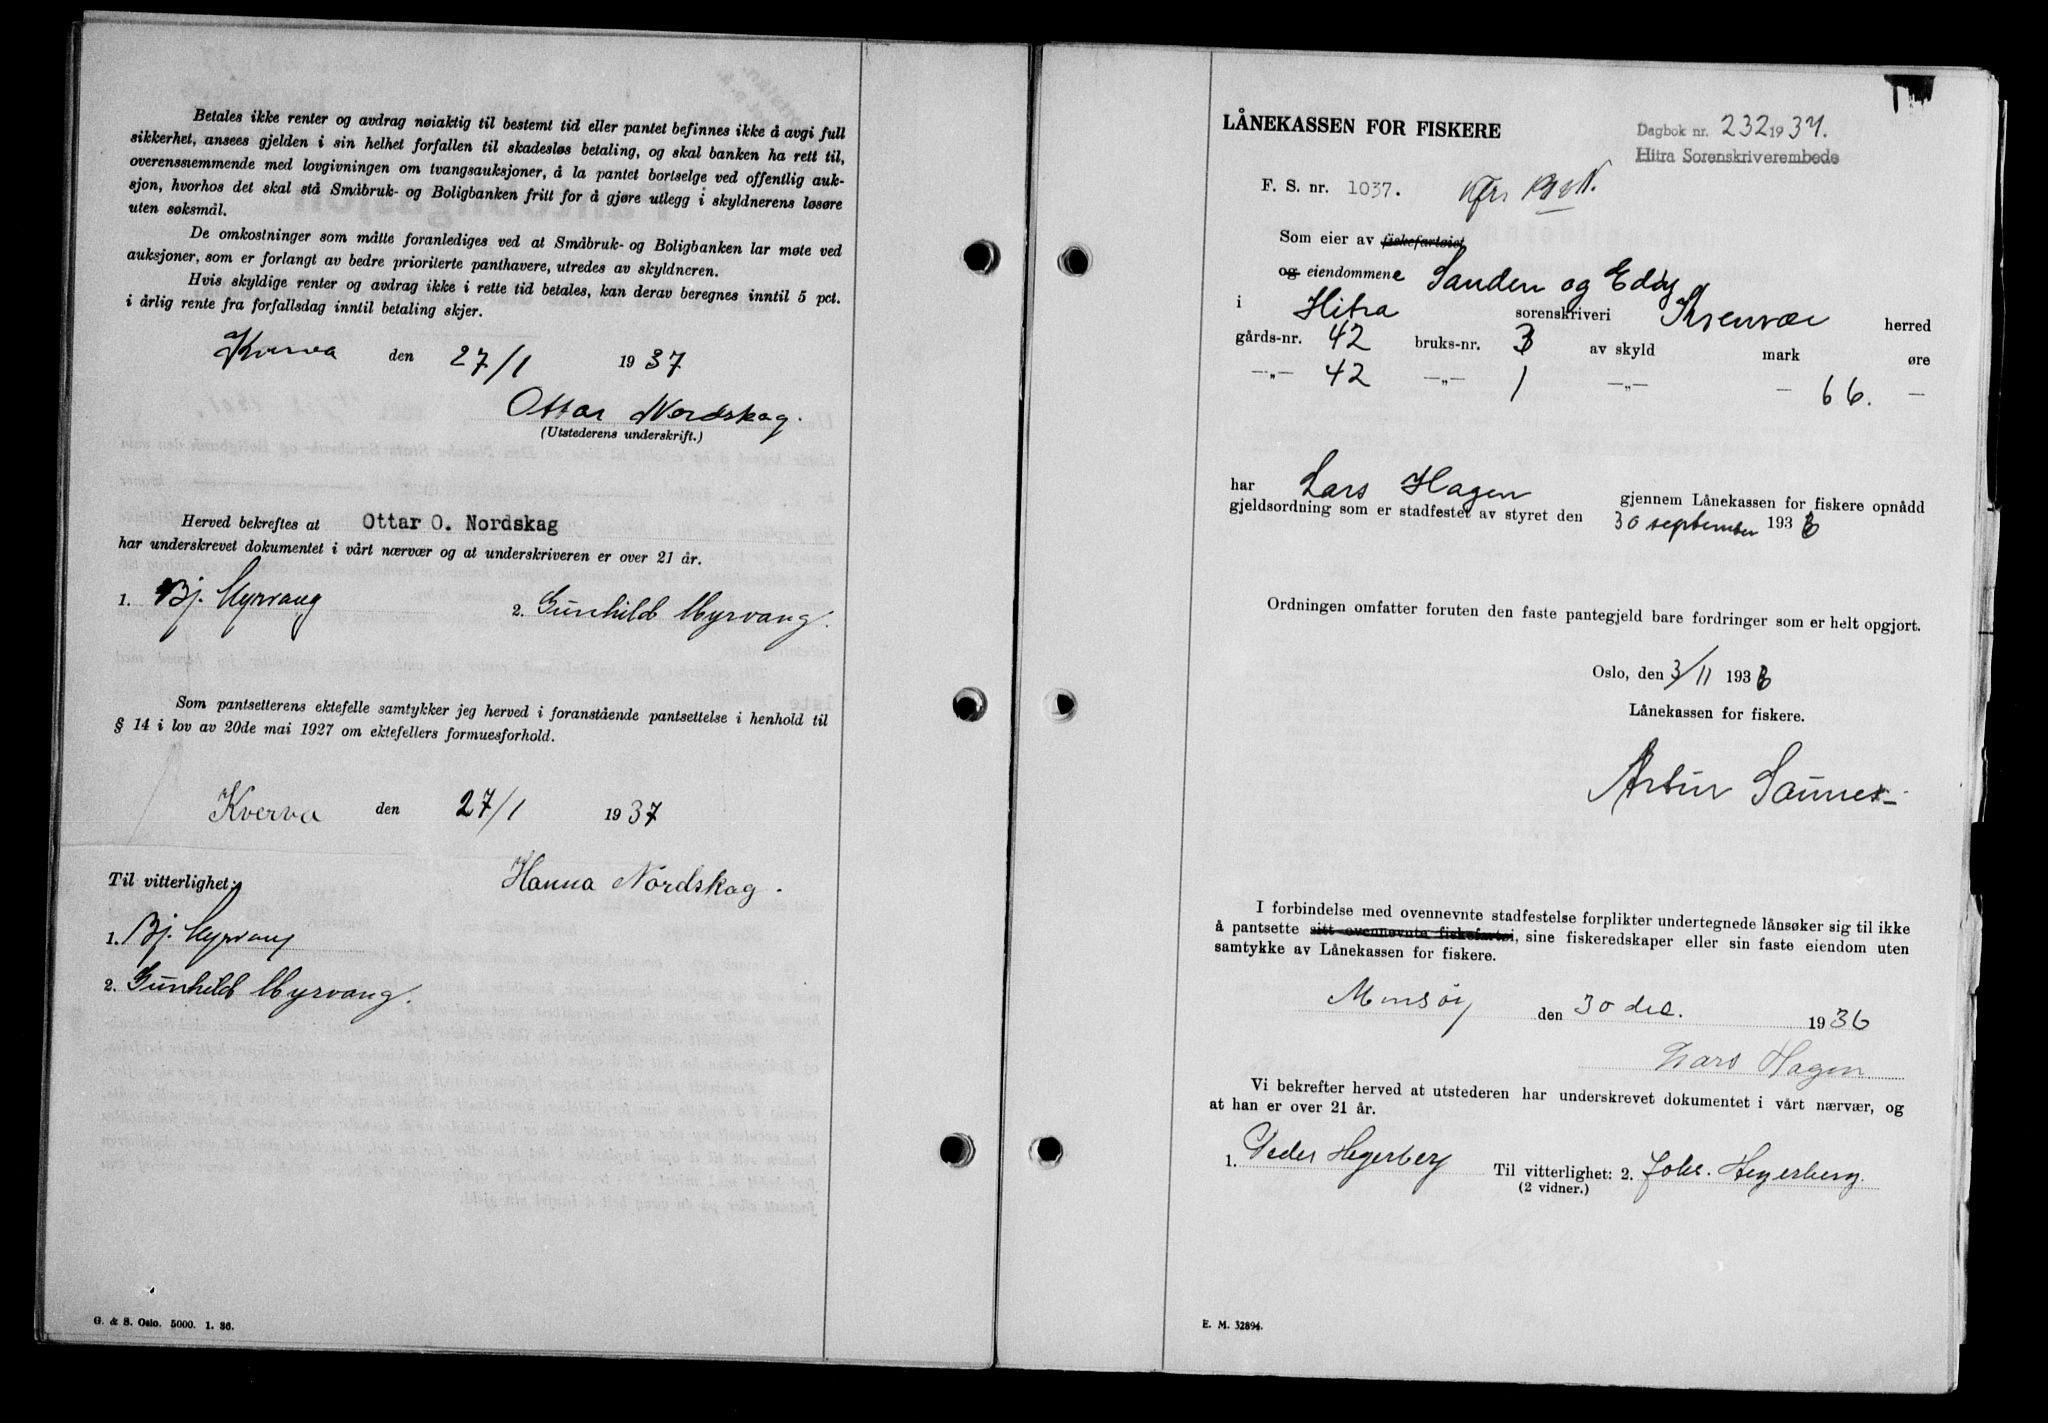 Betales ikke renter og avdrag nøiaktig til bestemt tid eller pantet befinnes ikke å avgi full
sikkerhet, ansees gjelden i sin helhet forfallen til skadesløs betaling, og skal banken ha rett til,
overensstemmende med lovgivningen om tvangsauksjoner, å la pantet bortselge ved offentlig auk-
sjon, hvorhos det skal stå Småbruk- og Boligbanken fritt for å gjøre utlegg i skyldnerens løsøre
uten søksmål.
De omkostninger som måtte foranlediges ved at Småbruk- og Boligbanken lar møte ved
auksjoner, som er forlangt av bedre prioriterte panthavere, utredes av skyldneren.
Hvis skyldige renter og avdrag ikke i rette tid betales, kan derav beregnes inntil 5 pct.
i årlig rente fra forfallsdag inntil betaling skjer.
Kverva den 27/1 1937
Ottar Nordskag.
(Utstederens underskrift.)
Herved bekreftes at Ottar O. Nordskag
har underskrevet dokumentet i vårt nærvær og at underskriveren er over 21 år.
1. Bj. Myrvang 2. Gunhild Myrvang.
Som pantsetterens ektefelle samtykker jeg herved i foranstående pantsettelse i henhold til
§ 14 i lov av 20de mai 1927 om ektefellers formuesforhold.
Kverva den 27/1 1937
Hanna Nordskag.
Til vitterlighet:
1. Bj. Myrvang
2. Gunhild Myrvang.
G. & S. Oslo. 5000. 1. 36.
LÅNEKASSEN FOR FISKERE
Dagbok nr. 232 1937.
Hitra Sorenskriverembede
F. S. nr. 1037.
Som eier av fiskefartøiet
og eiendommene Sanden og
i Hitra sorenskriveri Kvenvær herred
gårds-nr. 42 bruks-nr. 3 av skyld mark øre
—„— 42 —„— 1 —„— — 66. —
har Lars Hagen gjennem Lånekassen for fiskere opnådd
gjeldsordning som er stadfestet av styret den 30 september 1936
Ordningen omfatter foruten den faste pantegjeld bare fordringer som er helt opgjort.
Oslo, den 3/11 1936
Lånekassen for fiskere.
Artur Saunes
I forbindelse med ovennevnte stadfestelse forplikter undertegnede lånsøker sig til ikke
å pantsette sitt ovennevnte fiskefartøi, sine fiskeredskaper eller sin faste eiendom uten
samtykke av Lånekassen for fiskere.
den 30 des. 1936
Lars Hagen
Vi bekrefter herved at utstederen har underskrevet dokumentet i vårt nærvær, og
at han er over 21 år.
1. Peder Hegerberg Til vitterlighet: 2. Johs. Hegerberg.
(2 vidner.)
E. M. 32894.